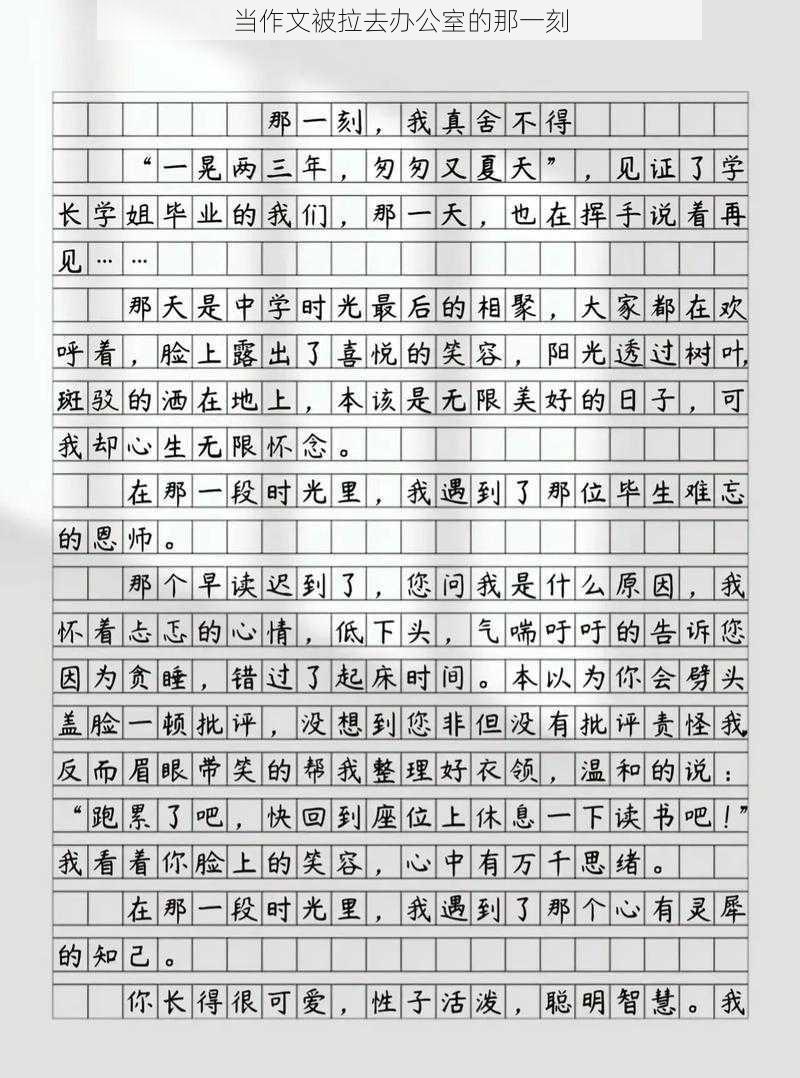 当作文被拉去办公室的那一刻
那一刻，我真舍不得
“一晃两三年，匆匆又夏天”，见证了学
长学姐毕业的我们，那一天，也在挥手说着再
见……
那天是中学时光最后的相聚，大家都在欢
呼着，脸上露出了喜悦的笑容，阳光透过树叶，
斑驳的洒在地上，本该是无限美好的日子，可
我却心生无限怀念。
在那一段时光里，我遇到了那位毕生难忘
的恩师。
那个早读迟到了，您问我是什么原因，我
怀着忐忑的心情，低下头，气喘吁吁的告诉您
因为贪睡，错过了起床时间。本以为你会劈头
盖脸一顿批评，没想到您非但没有批评责怪我，
反而眉眼带笑的帮我整理好衣领，温和的说：
“跑累了吧，快回到座位上休息一下读书吧！”
我看着你脸上的笑容，心中有万千思绪。
在那一段时光里，我遇到了那个心有灵犀
的知己。
你长得很可爱，性子活泼，聪明智慧。我